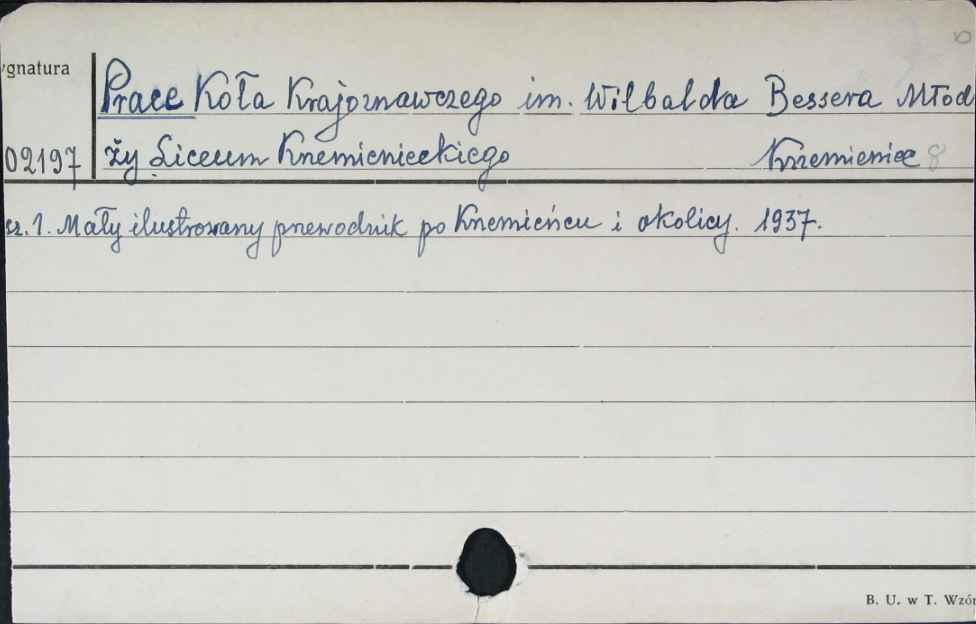 ygnatura
Prace Koła Krajoznawczego im. Wilbalda Bessera Młod
02197
ży Liceum Krzemienieckiego Krzemieniec 8
sz. 1. Mały ilustrowany przewodnik po Krzemieńcu i okolicy. 1937.
B. U. w T. Wzór